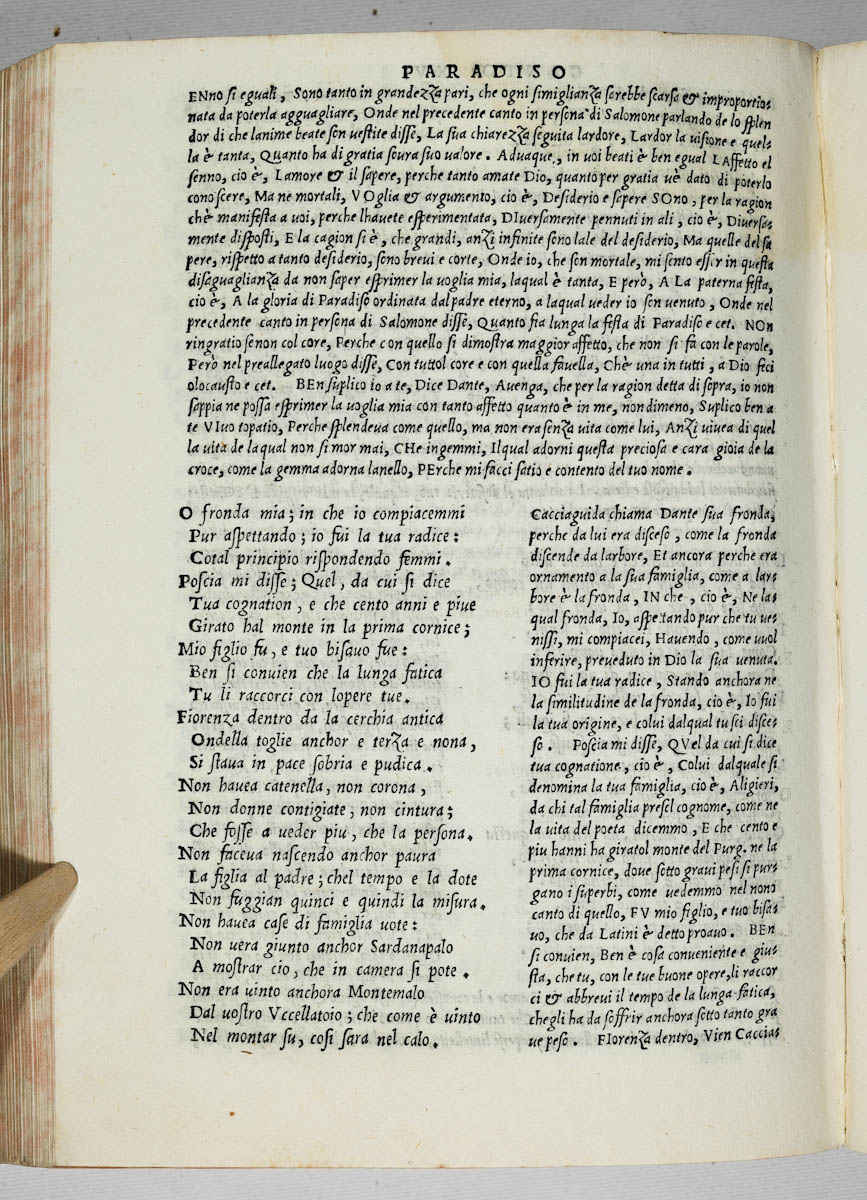 PARADISO
ENNO si eguali, Sono tanto in grandezza pari, che ogni simiglianza sarebbe scarsa & improportio-
nata da poterla agguagliare, Onde nel precedente canto in persona di Salomone parlando de lo splen
dor di che lanime beate son uestite disse, La sua chiarezza seguita lardore, Lardor la uisione e quel-
la è tanta, Quanto ha di gratia soura suo valore. Aduaque, in uoi beati è ben egual LAffetto el
senno, cio è, Lamore & il sapere, perche tanto amate Dio, quanto per gratia uè dato di poterlo
conoscere, Ma ne mortali, VOglia & argumento, cio è, Desiderio e sapere SOno, per la ragion
chè manifesta a uoi, perche lhauete esperimentata, DIuersamente pennuti in ali, cio è, Diuersa-
mente disposti, E la cagion si è, che grandi, anzi infinite sono lale del desiderio, Ma quelle del sa
pere, rispetto a tanto desiderio, sono breui e corte, Onde io, che son mortale, mi sento esser in questa
disaguaglianza da non saper esprimer la uoglia mia, laqual è tanta, E però, A LA paterna festa,
cio è, A la gloria di Paradiso ordinata dal padre eterno, a laqual ueder io son uenuto, Onde nel
precedente canto in persona di Salomone disse, Quanto fia lunga la festa di Paradiso e cet. NOn
ringratio senon col core, Perche con quello si dimostra maggior affetto, che non si fa con le parole,
Però nel preallegato luogo disse, Con tuttol core e con quella fauella, Chè una in tutti, a Dio feci
olocausto e cet. BEn suplico io a te, Dice Dante, Auenga, che per la ragion detta di sopra, io non
sappia ne possa esprimer la uoglia mia con tanto affetto quanto è in me, nondimeno, Suplico ben a
te VIuo topatio, Perche splendeua come quello, ma non era senza uita come lui, Anzi uiuea di quel
la uita de laqual non si mor mai, CHe ingemmi, Ilqual adorni questa preciosa e cara gioia de la
croce, come la gemma adorna lanello, PErche mi facci satio e contento del tuo nome.
O fronda mia; in che io compiacemmi
Pur aspettando; io fui la tua radice:
Cotal principio rispondendo femmi.
Poscia mi disse; Quel, da cui si dice
Tua cognation, e che cento anni e piue
Girato hal monte in la prima cornice;
Mio figlio fu, e tuo bisauo fue:
Ben si conuien che la lunga fatica
Tu li raccorci con lopere tue.
Fiorenza dentro da la cerchia antica
Ondella toglie anchor e terza e nona,
Si staua in pace sobria e pudica.
Non hauea catenella, non corona,
Non donne contigiate, non cintura;
Che fosse a ueder piu, che la persona.
Non faceua nascendo anchor paura
La figlia al padre; chel tempo e la dote
Non fuggian quinci e quindi la misura.
Non hauea case di famiglia uote:
Non uera giunto anchor Sardanapalo
A mostrar cio, che in camera si pote.
Non era uinto anchora Montemalo
Dal uostro Vccellatoio; che come è uinto
Nel montar su, cosi sara nel calo.
Cacciaguida chiama Dante sua fronda,
perche da lui era disceso, come la fronda
discende da larbore, Et ancora perche era
ornamento a la sua famiglia, come a lar-
bore è la fronda, IN che, cio è, Ne la-
qual fronda, Io, aspettando pur che tu ue-
nissi, mi compiacei, Hauendo, come uuol
inferire, preueduto in Dio la sua uenuta.
IO fui la tua radice, Stando anchora ne
la similitudine de la fronda, cio è, Io fui
la tua origine, e colui dalqual tu sci disce-
so. Poscia mi disse, QVel da cui si dice
tua cognatione, cio è, Colui dalquale si
denomina la tua famiglia, cio è, Aligieri,
da chi tal famiglia presel cognome, come ne
la uita del poeta dicemmo, E che cento e
piu hanni ha giratol monte del Purg. ne la
prima cornice, doue sotto graui pesi si pur-
gano i superbi, come uedemmo nel nono
canto di quello, FV mio figlio, e tuo bisa-
uo, che da Latini è detto proauo. BEn
si conuien, Ben è cosa conueniente e giu-
sta, che tu, con le tue buone opere, li raccor
ci & abbreui il tempo de la lunga fatica,
chegli ha da soffrir anchora sotto tanto gra
ue peso. FIorenza dentro, Vien Caccia-